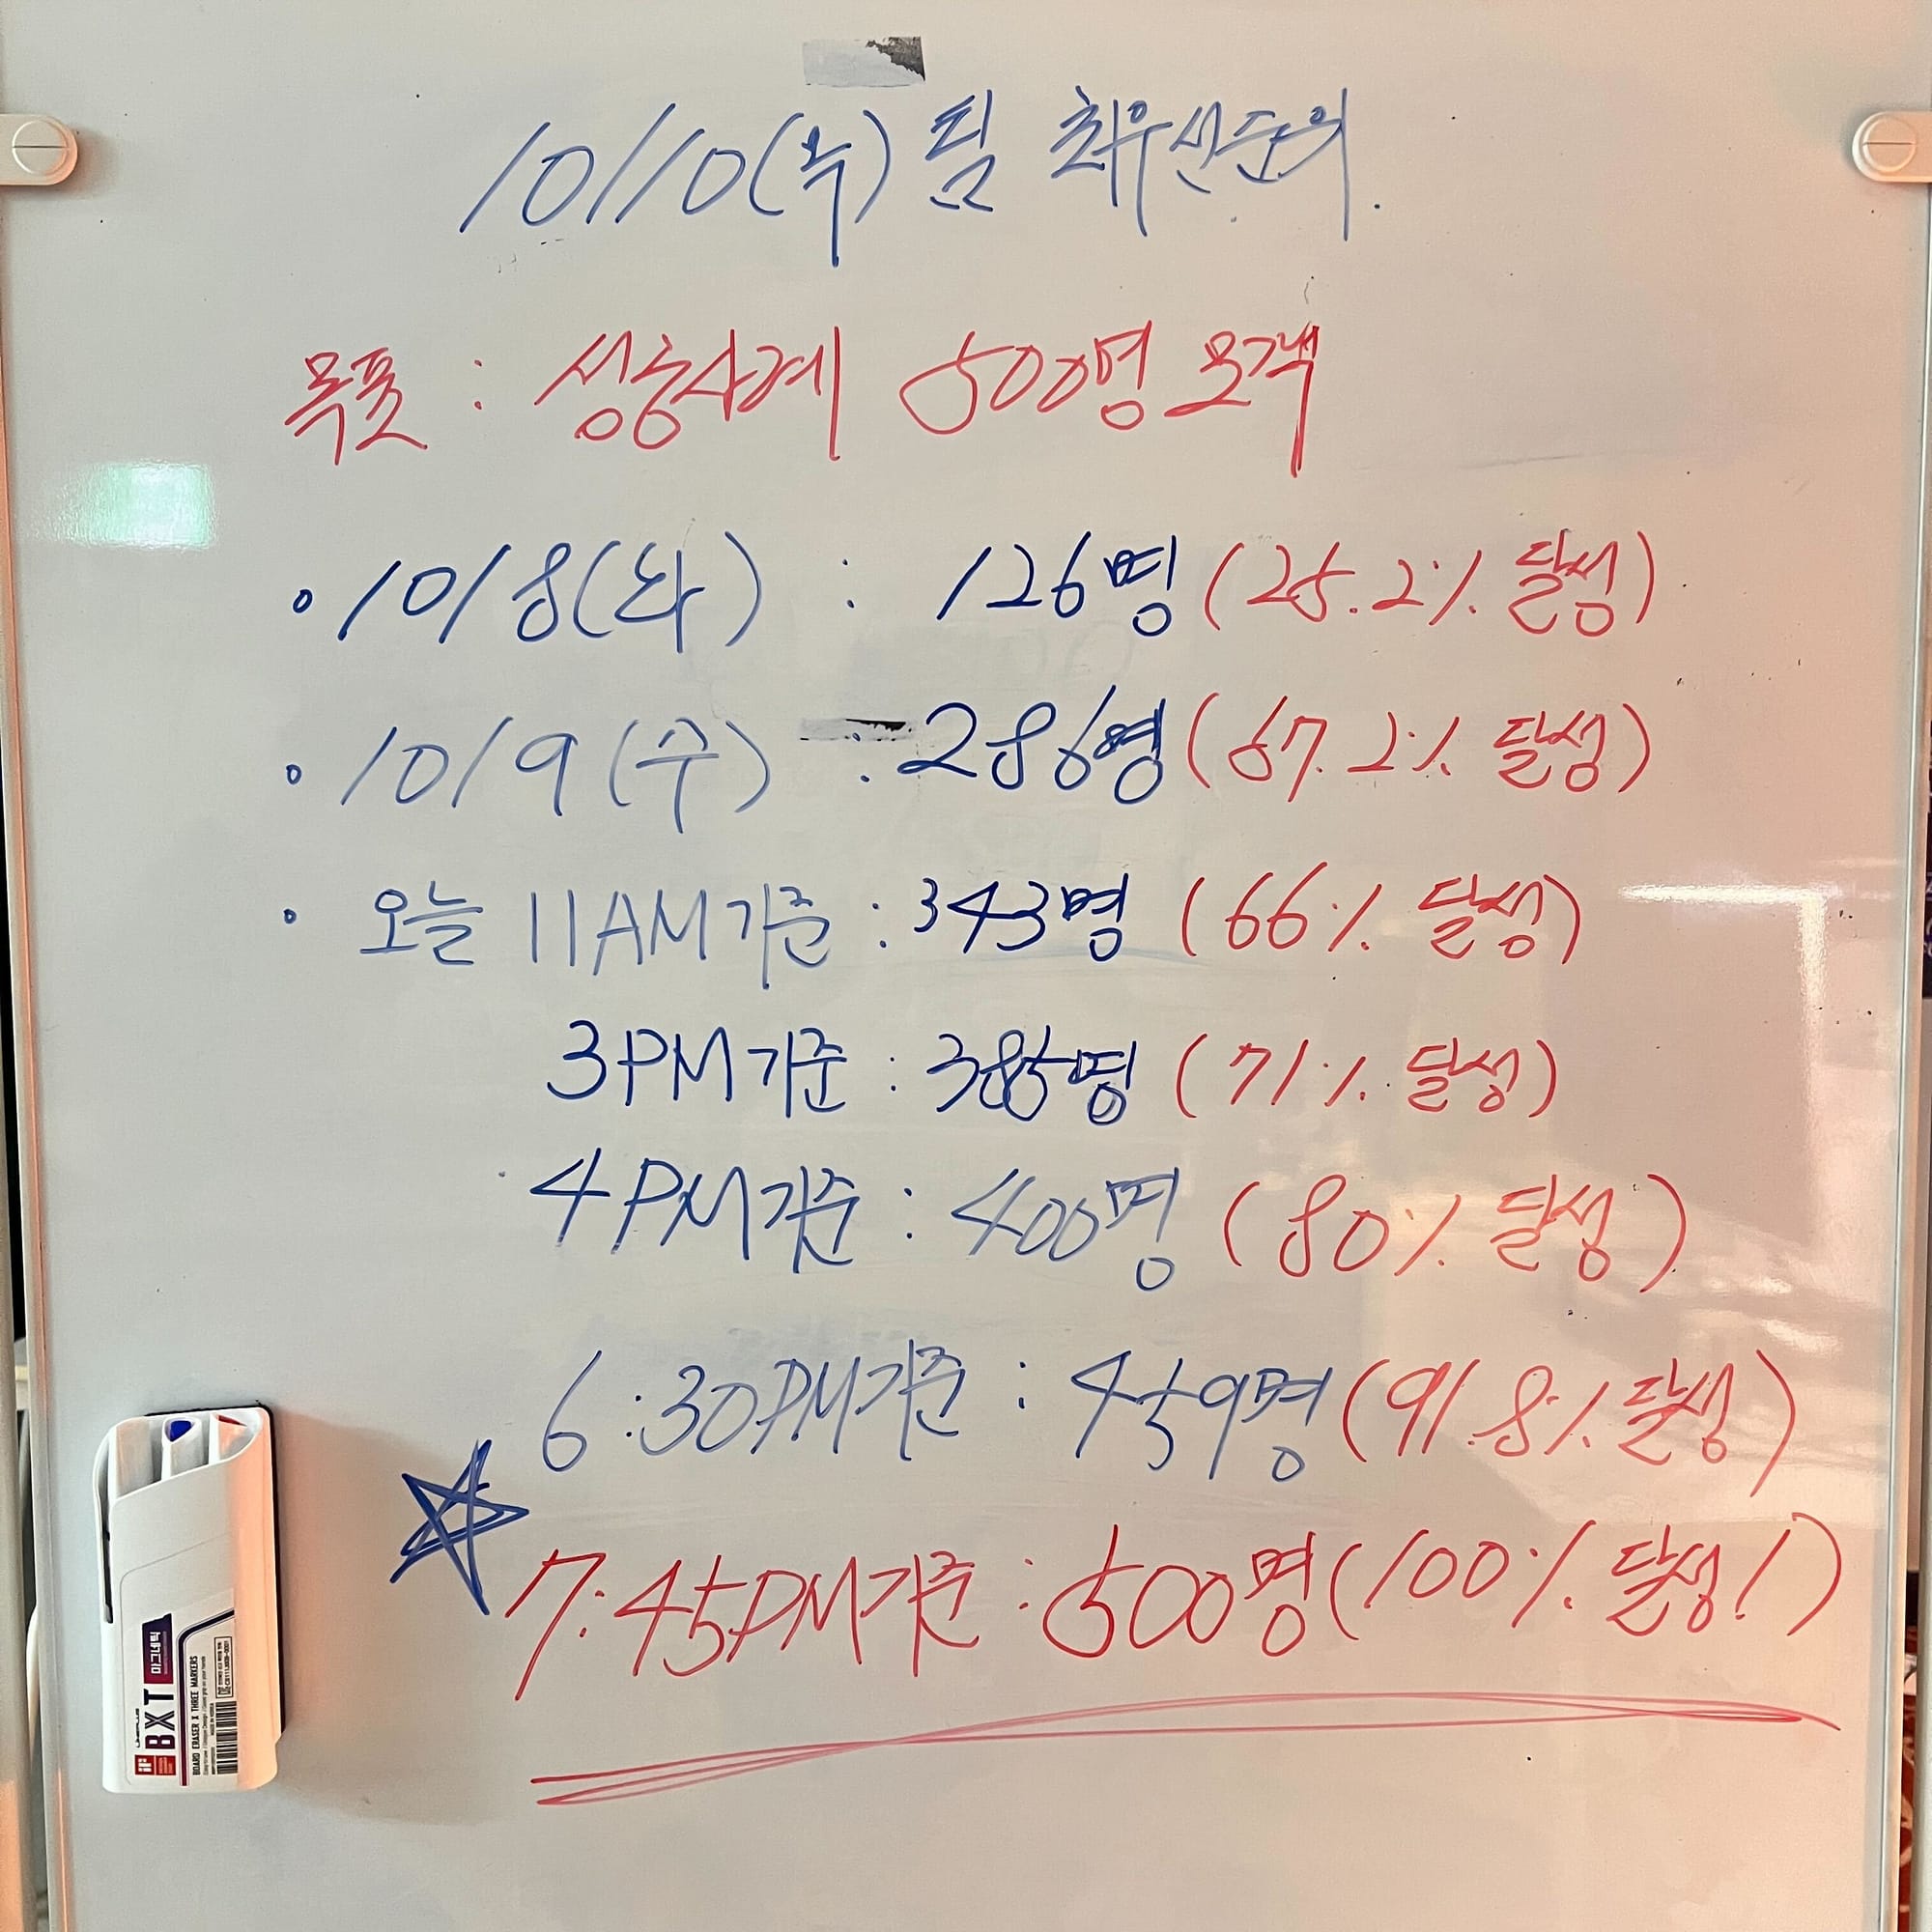 10/10(목) 팀 최우선순위.
목표 : 성능사계 500명 모객
• 10/8(화) : 126명 (25.2% 달성)
• 10/9 (수) : 286명 (67.2% 달성)
• 오늘 11AM 기준 : 343명 (66% 달성)
3PM 기준 : 385명 (71% 달성)
4PM 기준 : 400명 (80% 달성)
6:30PM 기준 : 459명 (91.8% 달성)
7:45PM 기준 : 500명 (100% 달성!)
BXT 마그네틱
BOARD ERASER X THREE MARKERS